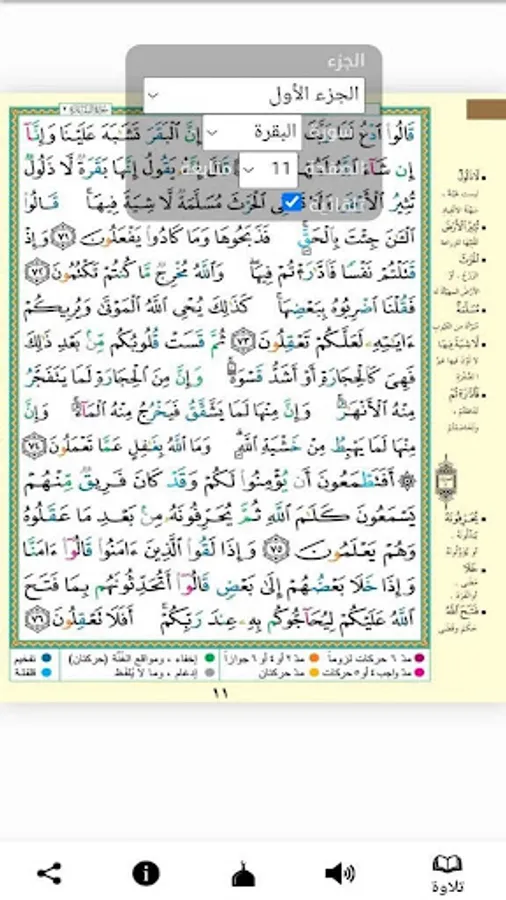 الجزء
الجزء الأول
البقرة
11
قَالُوا۟ ٱدْعُ لَنَا رَبَّكَ إِنَّ ٱلْبَقَرَ تَشَٰبَهَ عَلَيْنَا وَإِنَّآ
إِن شَآءَ ٱللَّهُ يَقُولُ إِنَّهَا بَقَرَةٌ لَّا ذَلُولٌ
تُثِيرُ ٱلْأَرْضَ وَلَا تَسْقِى ٱلْحَرْثَ مُسَلَّمَةٌ لَّا شِيَةَ فِيهَا ۚ قَالُوا۟
ٱلْـَٰٔنَ جِئْتَ بِٱلْحَقِّ ۚ فَذَبَحُوهَا وَمَا كَادُوا۟ يَفْعَلُونَ ﴿٧١﴾ وَإِذْ
قَتَلْتُمْ نَفْسًا فَٱدَّٰرَْٰٔتُمْ فِيهَا ۖ وَٱللَّهُ مُخْرِجٌ مَّا كُنتُمْ تَكْتُمُونَ ﴿٧٢﴾
فَقُلْنَا ٱضْرِبُوهُ بِبَعْضِهَا ۚ كَذَٰلِكَ يُحْىِ ٱللَّهُ ٱلْمَوْتَىٰ وَيُرِيكُمْ
ءَايَٰتِهِۦ لَعَلَّكُمْ تَعْقِلُونَ ﴿٧٣﴾ ثُمَّ قَسَتْ قُلُوبُكُم مِّنۢ بَعْدِ ذَٰلِكَ
فَهِىَ كَٱلْحِجَارَةِ أَوْ أَشَدُّ قَسْوَةً ۚ وَإِنَّ مِنَ ٱلْحِجَارَةِ لَمَا يَتَفَجَّرُ
مِنْهُ ٱلْأَنْهَٰرُ ۚ وَإِنَّ مِنْهَا لَمَا يَشَّقَّقُ فَيَخْرُجُ مِنْهُ ٱلْمَآءُ ۚ وَإِنَّ
مِنْهَا لَمَا يَهْبِطُ مِنْ خَشْيَةِ ٱللَّهِ ۗ وَمَا ٱللَّهُ بِغَٰفِلٍ عَمَّا تَعْمَلُونَ ﴿٧٤﴾
۞ أَفَتَطْمَعُونَ أَن يُؤْمِنُوا۟ لَكُمْ وَقَدْ كَانَ فَرِيقٌ مِّنْهُمْ
يَسْمَعُونَ كَلَٰمَ ٱللَّهِ ثُمَّ يُحَرِّفُونَهُۥ مِنۢ بَعْدِ مَا عَقَلُوهُ
وَهُمْ يَعْلَمُونَ ﴿٧٥﴾ وَإِذَا لَقُوا۟ ٱلَّذِينَ ءَامَنُوا۟ قَالُوٓا۟ ءَامَنَّا
وَإِذَا خَلَا بَعْضُهُمْ إِلَىٰ بَعْضٍ قَالُوٓا۟ أَتُحَدِّثُونَهُم بِمَا فَتَحَ
ٱللَّهُ عَلَيْكُمْ لِيُحَآجُّوكُم بِهِۦ عِندَ رَبِّكُمْ ۚ أَفَلَا تَعْقِلُونَ ﴿٧٦﴾
لَا ذَلُولٌ
تُثِيرُ الْأَرْضَ
الْحَرْثَ
مُسَلَّمَةٌ
لَا شِيَةَ فِيهَا
فَادَّارَأْتُمْ
يُحَرِّفُونَهُ
خَلَا
فَتَحَ اللَّهُ
حكم وقضى
مدّ ٦ حركات لزوماً مدّ ٢ أو ٤ أو ٦ جوازاً إخفاء ، ومواقع الغنّة (حركتان) تفخيم
مدّ واجب ٤ أو ٥ حركات مدّ حركتان إدغام ، وما لا يُلفظ قلقلة
١١
تلاوة